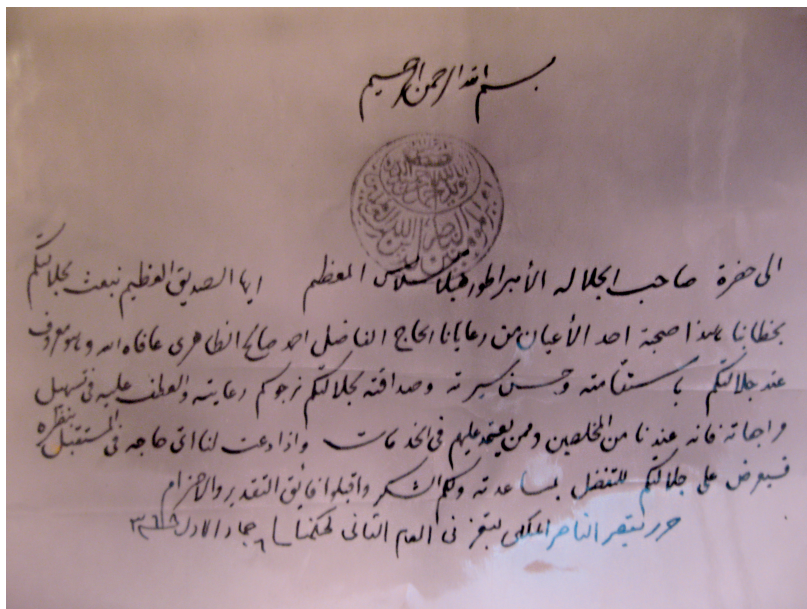 بسم الله الرحمن الرحيم
الى حضرة صاحب الجلاله الأمبراطور هيلاسلاسى المعظم ايها الصديق العظيم نبعث بجلالتكم
بخطابنا هذا صحبة احد الأعيان من رعايانا الحاج الفاضل احمد صالح الظاهرى عافاه الله وهو معروف
عند جلالتكم باستقامته وحسن سيرته وصداقته بجلالتكم نرجوكم رعايته والعطف عليه فى تسهيل
مراجعاته فانه عندنا من المخلصين وممن يعتمد عليهم فى الخدمات واذا دعت لنا اى حاجه فى المستقبل بنظره
فسيعرض على جلالتكم للتفضل بمساعدته ولكم الشكر واقبلوا فايق التقدير والاحترام
حرر بقصر الناصر الملكى بتعز فى العام الثانى لحكمنا ٦ جماد الاول